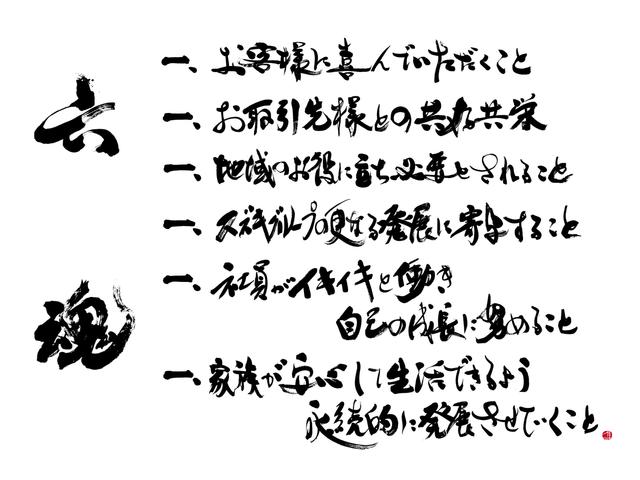 六魂
一、お客様に喜んでいただくこと
一、お取引先様との共存共栄
一、地域のお役に立ち必要とされること
一、グループの更なる発展に寄与すること
一、社員がイキイキと働き
自己の成長に努めること
一、家族が安心して生活できるよう
永続的に発展させていくこと